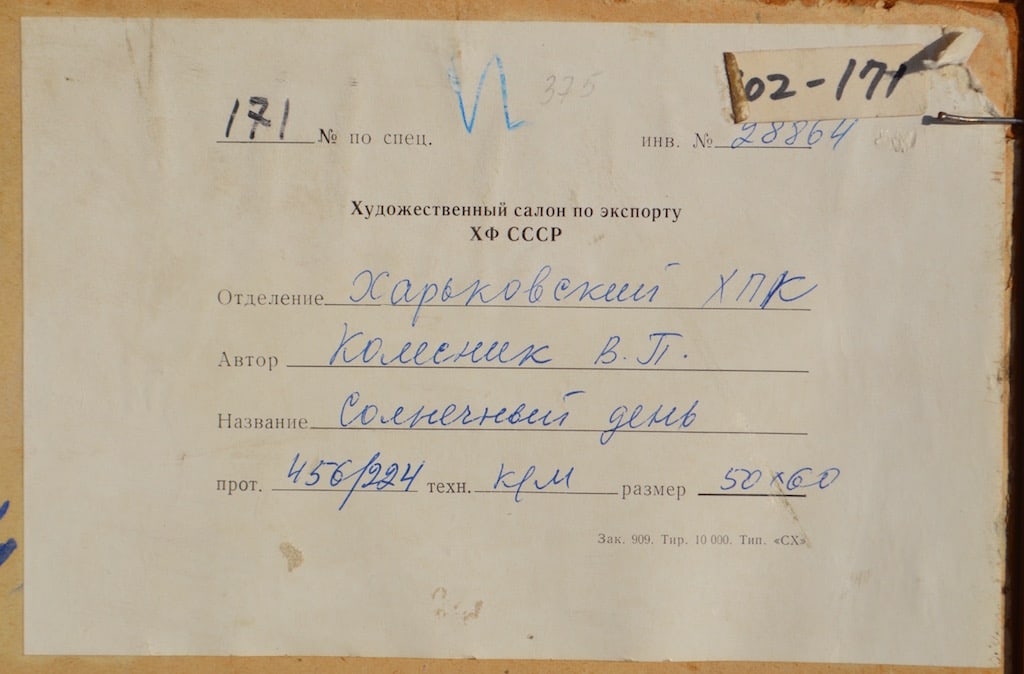 И 375 02-171
171 № по спец. инв. № 28864
Художественный салон по экспорту
ХФ СССР
Отделение Харьковский ХПК
Автор Колесник В. П.
Название Солнечный день
прот. 456/224 техн. к/м размер 50×60
Зак. 909. Тир. 10 000. Тип. «СХ»